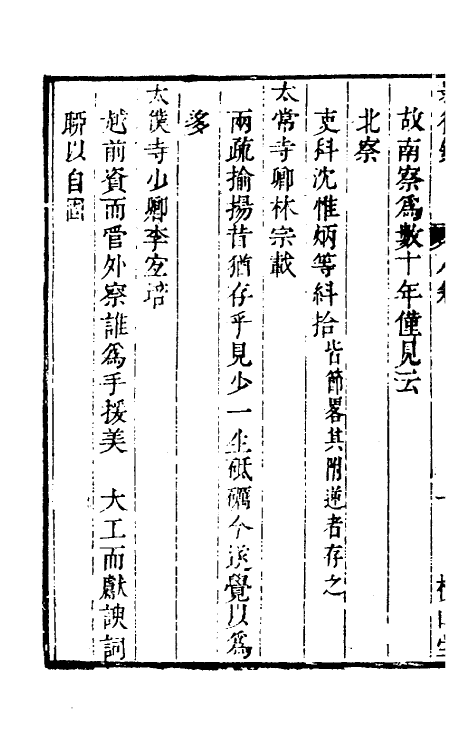 故南察爲數十年僅見云
北察
吏科沈惟炳等糾拾皆節畧其附逆者存之
太常寺卿林宗載
兩疏揄揚昔猶存乎見少一生砥礪今遂覺以爲
多
太僕寺少卿李宜培
越前資而管外察誰爲手援美 大工而獻諛詞
聊以自固